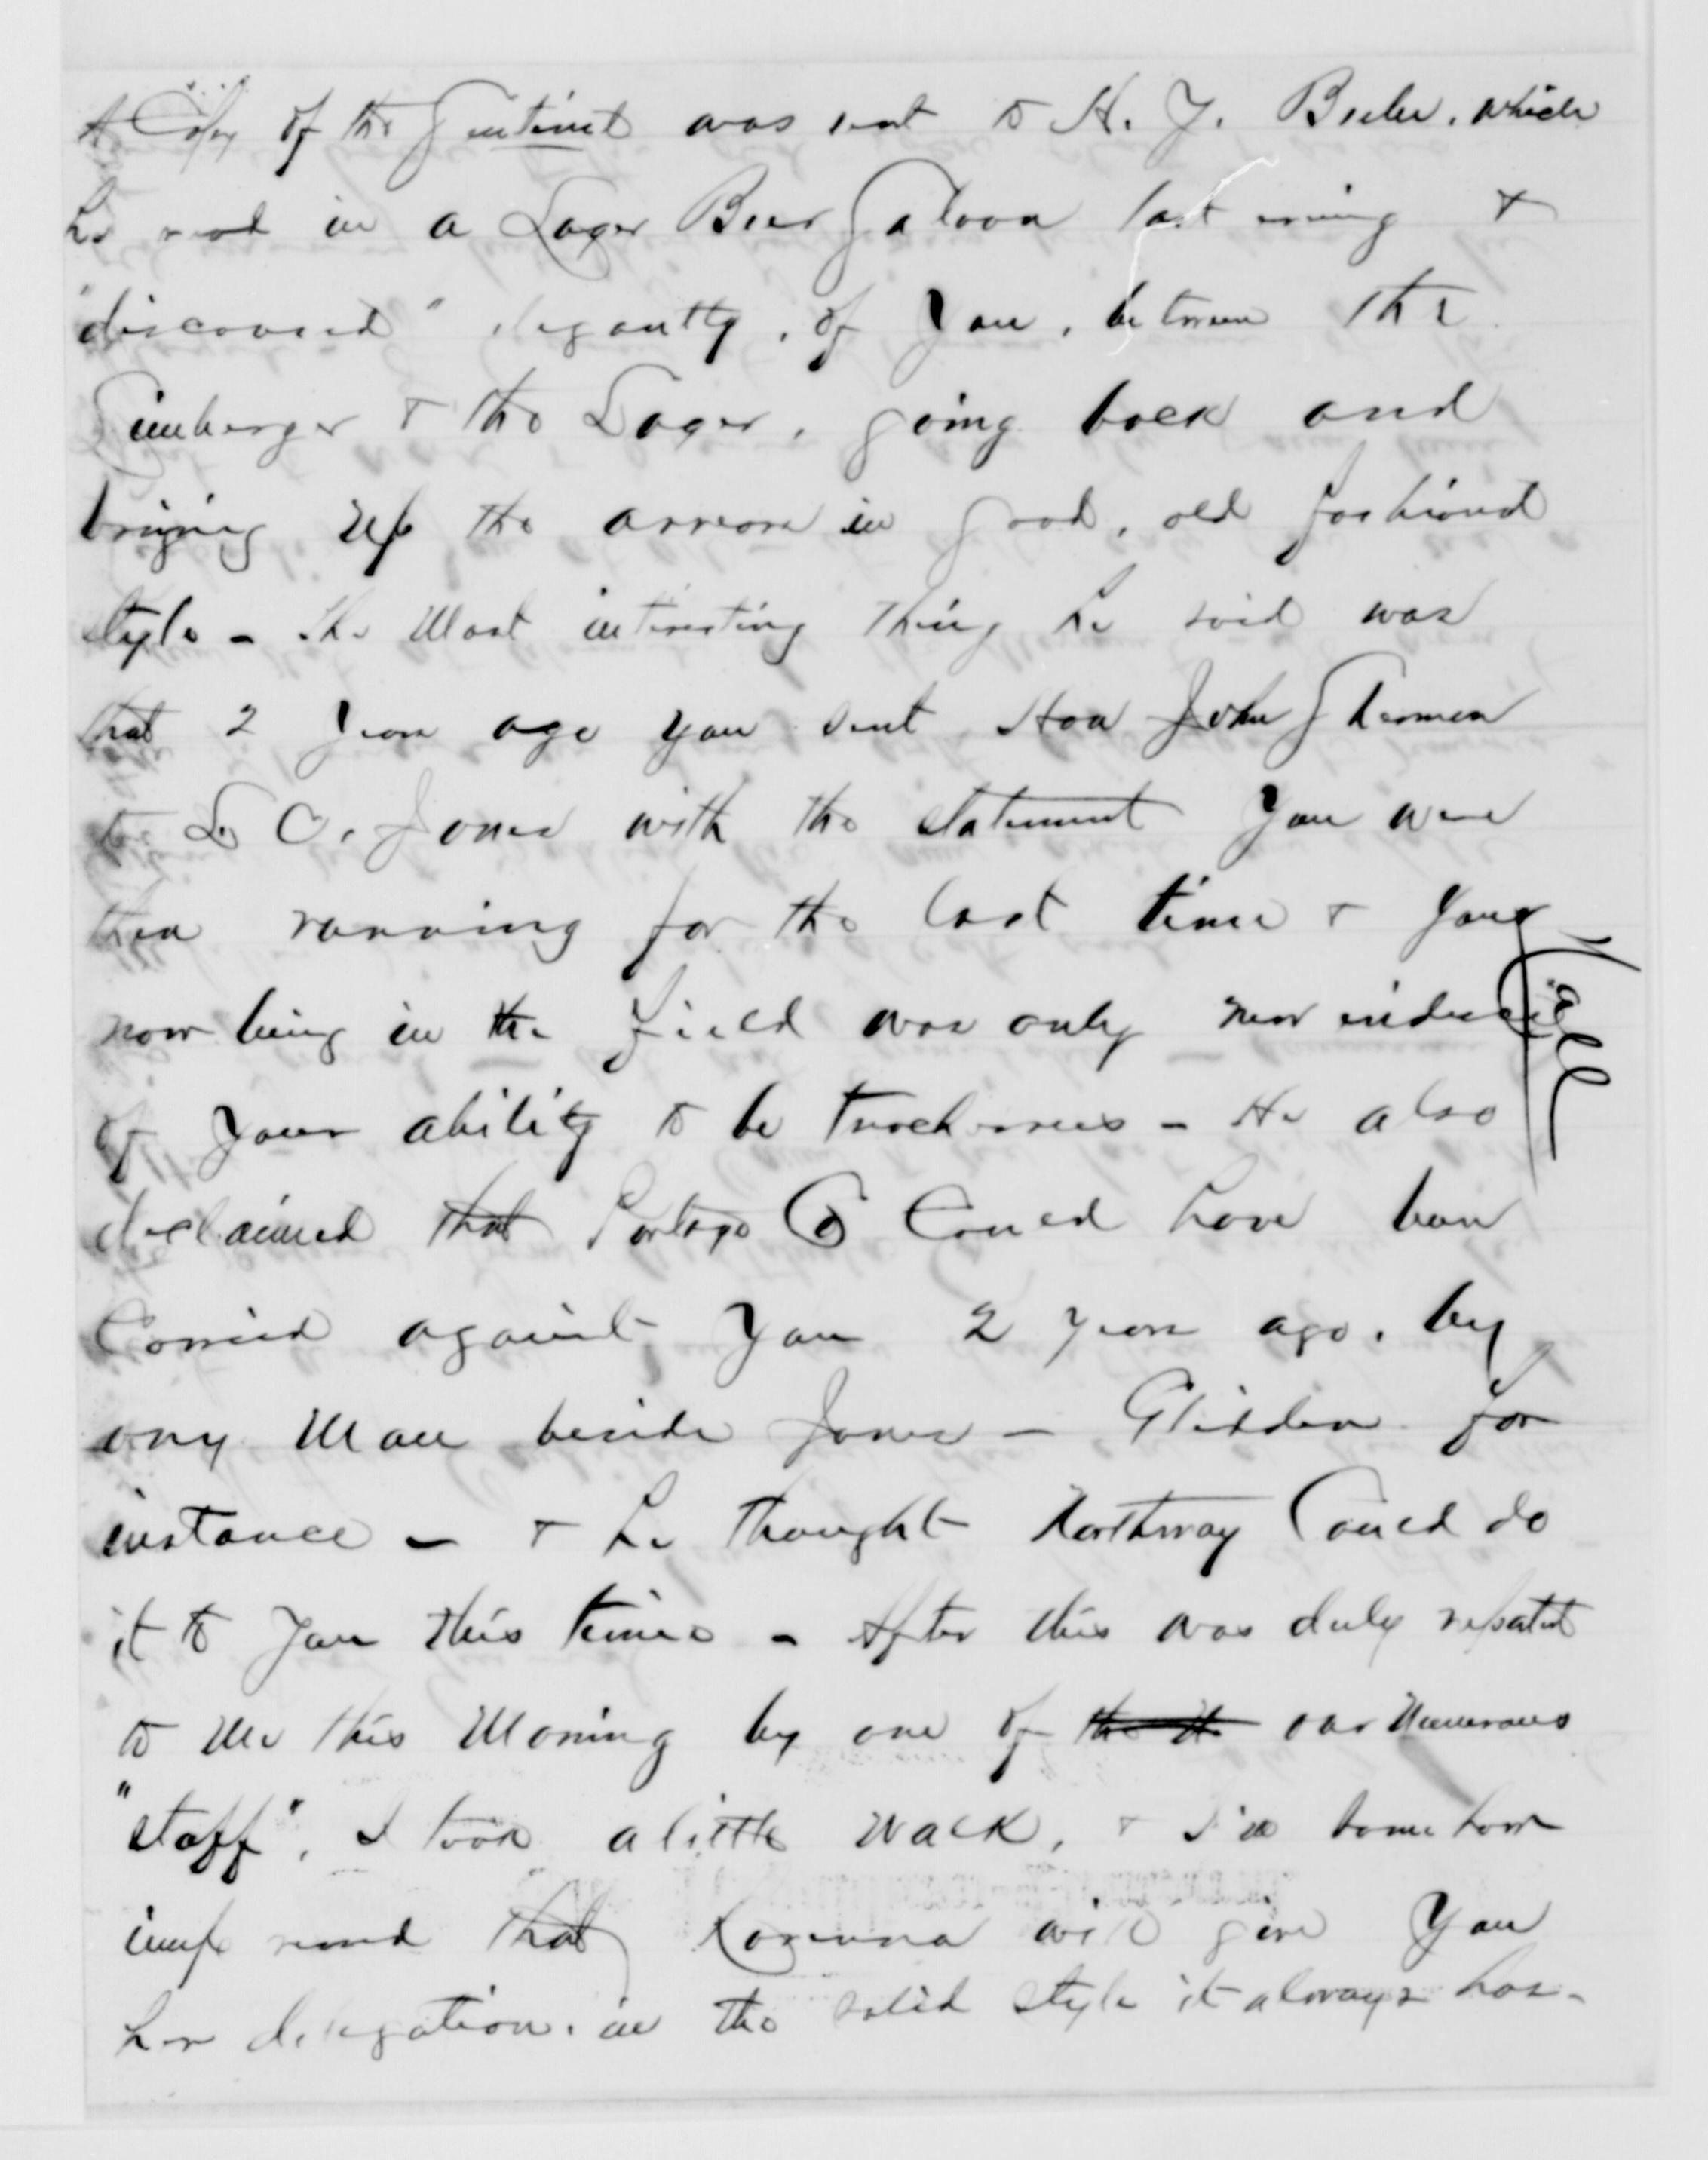 A Copy of the Sentinel was sent to H. J. Beebe. which
he read in a Lager Beer Saloon last evening &
"discoursed" elegantly, of you, between the
Limberger & the Lager, going back and
bringing up the arrears in good, old fashioned
style - The most interesting thing he said was
that 2 years ago you sent Hon John Sherman
to L C. Jones with the statement you were
then running for the last time & your
now being in the field was only new evidence
of your ability to be treacherous - He also
declaimed that Portage Co could have been
carried against you 2 years ago, by
any man beside Jones - Glidden for
instance - & he thought Northway could do
it to you this time - After this was duly repeated
to me this morning by one of our numerous
"staff", I took a little walk, & I'm somehow
imp ressed that Ravenna will give you
her delegation, in the solid style it always has -
Hall